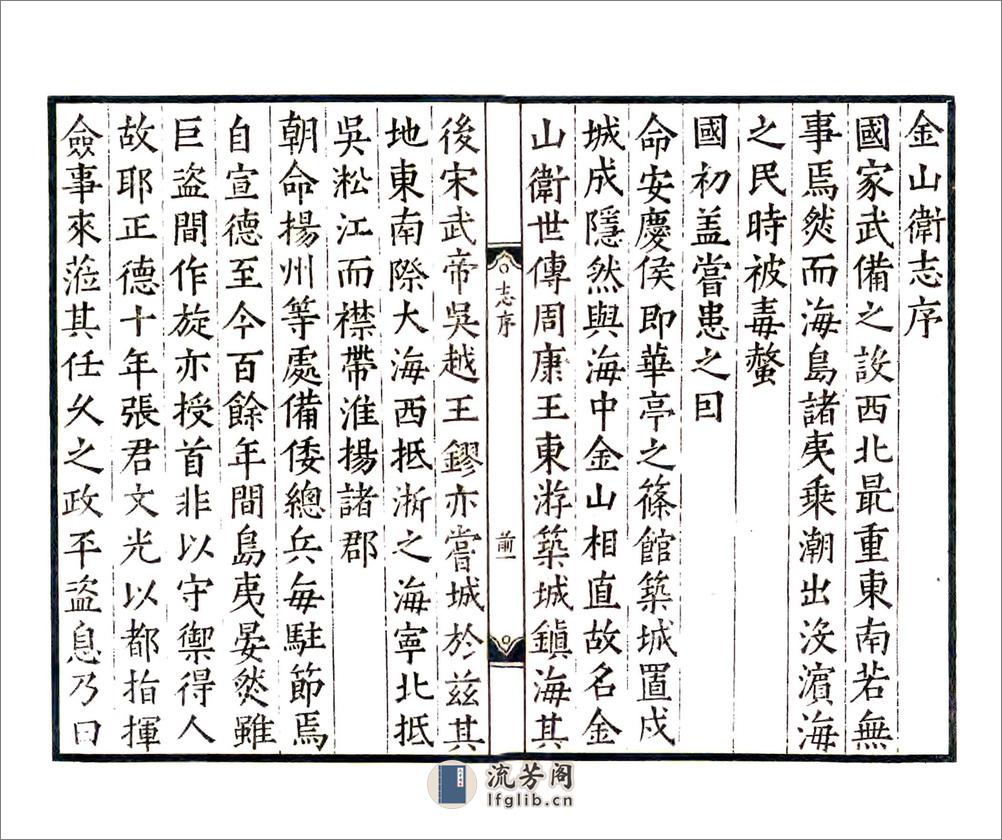 金山衛志序
國家武備之設西北最重東南若無
事焉然而海島諸夷乗潮出没濵海
之民時被毒螫
國初盖嘗患之曰
命安慶侯即華亭之篠館築城置戍
城成隱然與海中金山相直故名金
山衛世傳周康王東游築城鎮海其
志序
前一
後宋武帝吳越王鏐亦嘗城於兹其
地東南際大海西抵淅之海寧北抵
吳淞江而襟帶淮揚諸郡
朝命揚州等處備倭總兵每駐節焉
自宣德至今百餘年間島夷晏然雖
巨盗間作旋亦授首非以守禦得人
故耶正德十年張君文光以都指揮
僉事來蒞其任乆之政平盗息乃曰
流芳阁
lfglib.cn